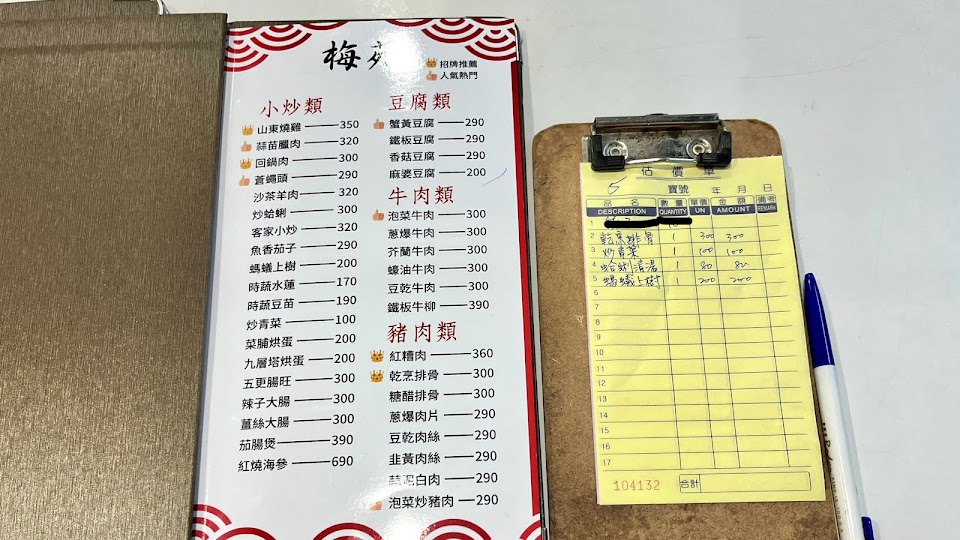 梅
招牌推薦
人氣熱門
小炒類
山東燒雞 350
蒜苗臘肉 320
回鍋肉 300
蒼蠅頭 290
沙茶羊肉 320
炒蛤蜊 300
客家小炒 320
魚香茄子 290
螞蟻上樹 200
時蔬水蓮 170
時蔬豆苗 190
炒青菜 100
菜脯烘蛋 200
九層塔烘蛋 200
五更腸旺 300
辣子大腸 300
薑絲大腸 300
茄腸煲 390
紅燒海參 690
豆腐類
蟹黃豆腐 290
鐵板豆腐 290
香菇豆腐 290
麻婆豆腐 200
牛肉類
泡菜牛肉 300
蔥爆牛肉 300
芥蘭牛肉 300
蠔油牛肉 300
豆乾牛肉 300
鐵板牛柳 390
豬肉類
紅糟肉 360
乾烹排骨 300
糖醋排骨 300
蔥爆肉片 290
豆乾肉絲 290
韭黃肉絲 290
蒜泥白肉 290
泡菜炒豬肉 290
估價單
5 寶號 年 月 日
品名 數量 單價 金額 備考
DESCRIPTION QUANTITY UN AMOUNT REMARK
1
2 乾烹排骨 1 300 300
3 炒青菜 1 100 100
4 蛤蜊清湯 1 80 80
5 螞蟻上樹 1 200 200
6
7
8
9
10
11
12
13
14
15
16
17
104132 合計